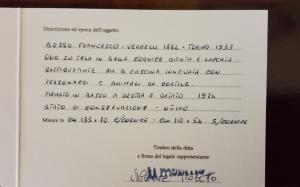 Descrizione ed epoca dell'oggetto
BOSSO FRANCESCO - VERCELLI 1864 - TORINO 1933
OLIO SU TELA IN BELLA CORNICE DORATA E LACCATA
RAFFIGURANTE UNA CASCINA INNEVATA CON
PERSONAGGI E ANIMALI DA CORTILE.
FIRMATO IN BASSO A DESTRA E DATATO 1924
STATO DI CONSERVAZIONE - OTTIMO
Misure in CM 135 x 70 C/CORNICE - CM 110 x 54 S/CORNICE
Timbro della ditta
e firma del legale rappresentante